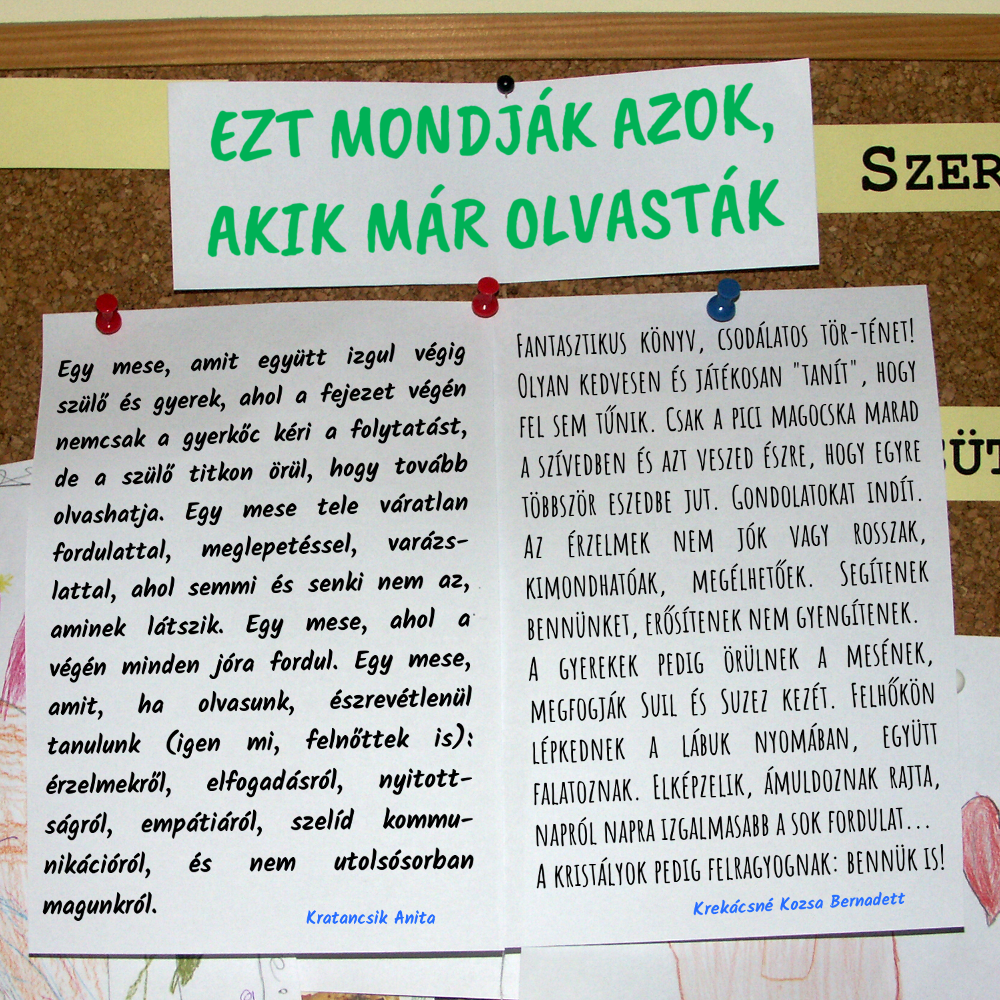 EZT MONDJÁK AZOK,
AKIK MÁR OLVASTÁK
SZER
ÜT
Egy mese, amit együtt izgul végig
szülő és gyerek, ahol a fejezet végén
nemcsak a gyerkőc kéri a folytatást,
de a szülő titkon örül, hogy tovább
olvashatja. Egy mese tele váratlan
fordulattal, meglepetéssel, varázs-
lattal, ahol semmi és senki nem az,
aminek látszik. Egy mese, ahol a
végén minden jóra fordul. Egy mese,
amit, ha olvasunk, észrevétlenül
tanulunk (igen mi, felnőttek is):
érzelmekről, elfogadásról, nyitott-
ságról, empátiáról, szelíd kommu-
nikációról, és nem utolsósorban
magunkról.
Kratancsik Anita
FANTASZTIKUS KÖNYV, CSODÁLATOS TÖR-TÉNET!
OLYAN KEDVESEN ÉS JÁTÉKOSAN "TANÍT", HOGY
FEL SEM TŰNIK. CSAK A PICI MAGOCSKA MARAD
A SZÍVEDBEN ÉS AZT VESZED ÉSZRE, HOGY EGYRE
TÖBBSZÖR ESZEDBE JUT. GONDOLATOKAT INDÍT.
AZ ÉRZELMEK NEM JÓK VAGY ROSSZAK,
KIMONDHATÓAK, MEGÉLHETŐEK. SEGÍTENEK
BENNÜNKET, ERŐSÍTENEK NEM GYENGÍTENEK.
A GYEREKEK PEDIG ÖRÜLNEK A MESÉNEK,
MEGFOGJÁK SUIL ÉS SUZEZ KEZÉT. FELHŐKÖN
LÉPKEDNEK A LÁBUK NYOMÁBAN, EGYÜTT
FALATOZNAK. ELKÉPZELIK, ÁMULDOZNAK RAJTA,
NAPRÓL NAPRA IZGALMASABB A SOK FORDULAT...
A KRISTÁLYOK PEDIG FELRAGYOGNAK: BENNÜK IS!
Krekácsné Kozsa Bernadett